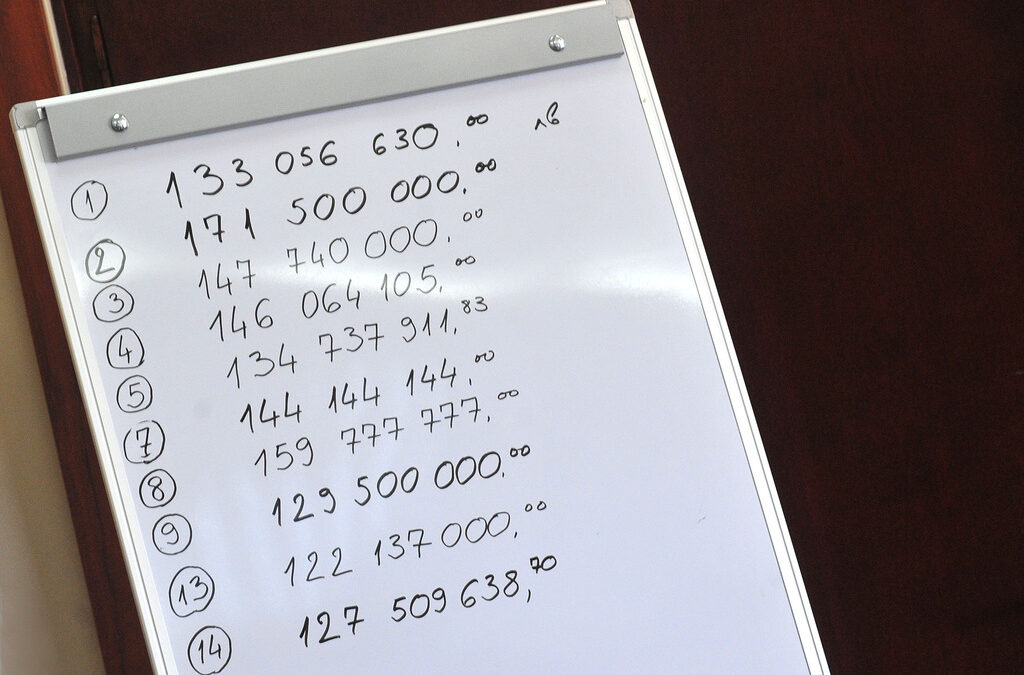 1 133 056 630,00 лв
2 171 500 000,00
3 147 740 000,00
4 146 064 105,00
5 134 737 911,83
7 144 144 144,00
8 159 777 777,00
9 129 500 000,00
13 122 137 000,00
14 127 509 638,70